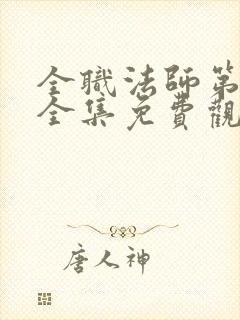 全職法師第
全集免費觀
唐人神